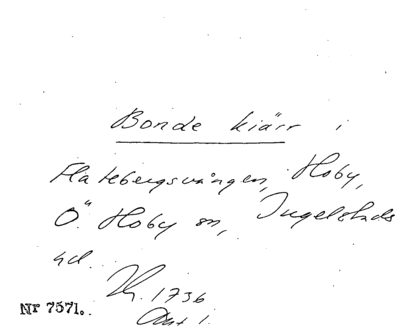 Bonde kiärr i
Flatebergsvången, Hoby,
Ö. Hoby sn, Ingelstads
hd.
1736
Akt 1.
Nr 7571.